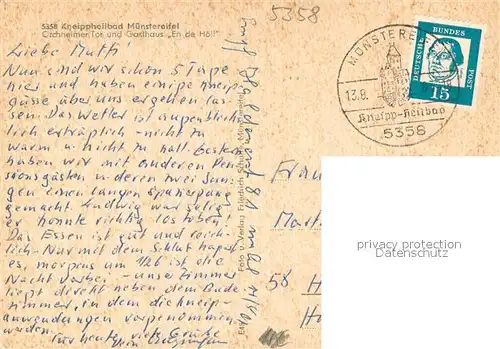 5358 Kneippheilbad Münstereifel
Orchheimer Tor und Gasthaus „En de Höll“
5358
Liebe Mutti!
Nun sind wir schon 5 Tage
hier und haben einige Kneip-
güsse über uns ergehen las-
sen. Das Wetter ist augenblick-
lich erträglich - nicht zu
warm u. nicht zu kalt. Gestern
haben wir mit anderen Pen-
sionsgästen u. deren zwei Jun-
gen einen langen Spaziergang
gemacht. Ludwig war selig,
er konnte richtig los toben!
Das Essen ist gut und reich-
lich. Nur mit dem Schlaf hapert
es, morgens um 1/2 6 ist die
Nacht vorbei - unser Zimmer
liegt direkt neben dem Bade-
zimmer, in dem die Kneip-
anwendungen vorgenommen
werden.
Für heute viele Grüße
Foto u. Verlag Friedrich
MÜNSTEREI
13.9.
Kneipp-Heilbad
5358
DEUTSCHE BUNDESPOST
15
Frau
Mart
58 H
privacy protection
Datenschutz